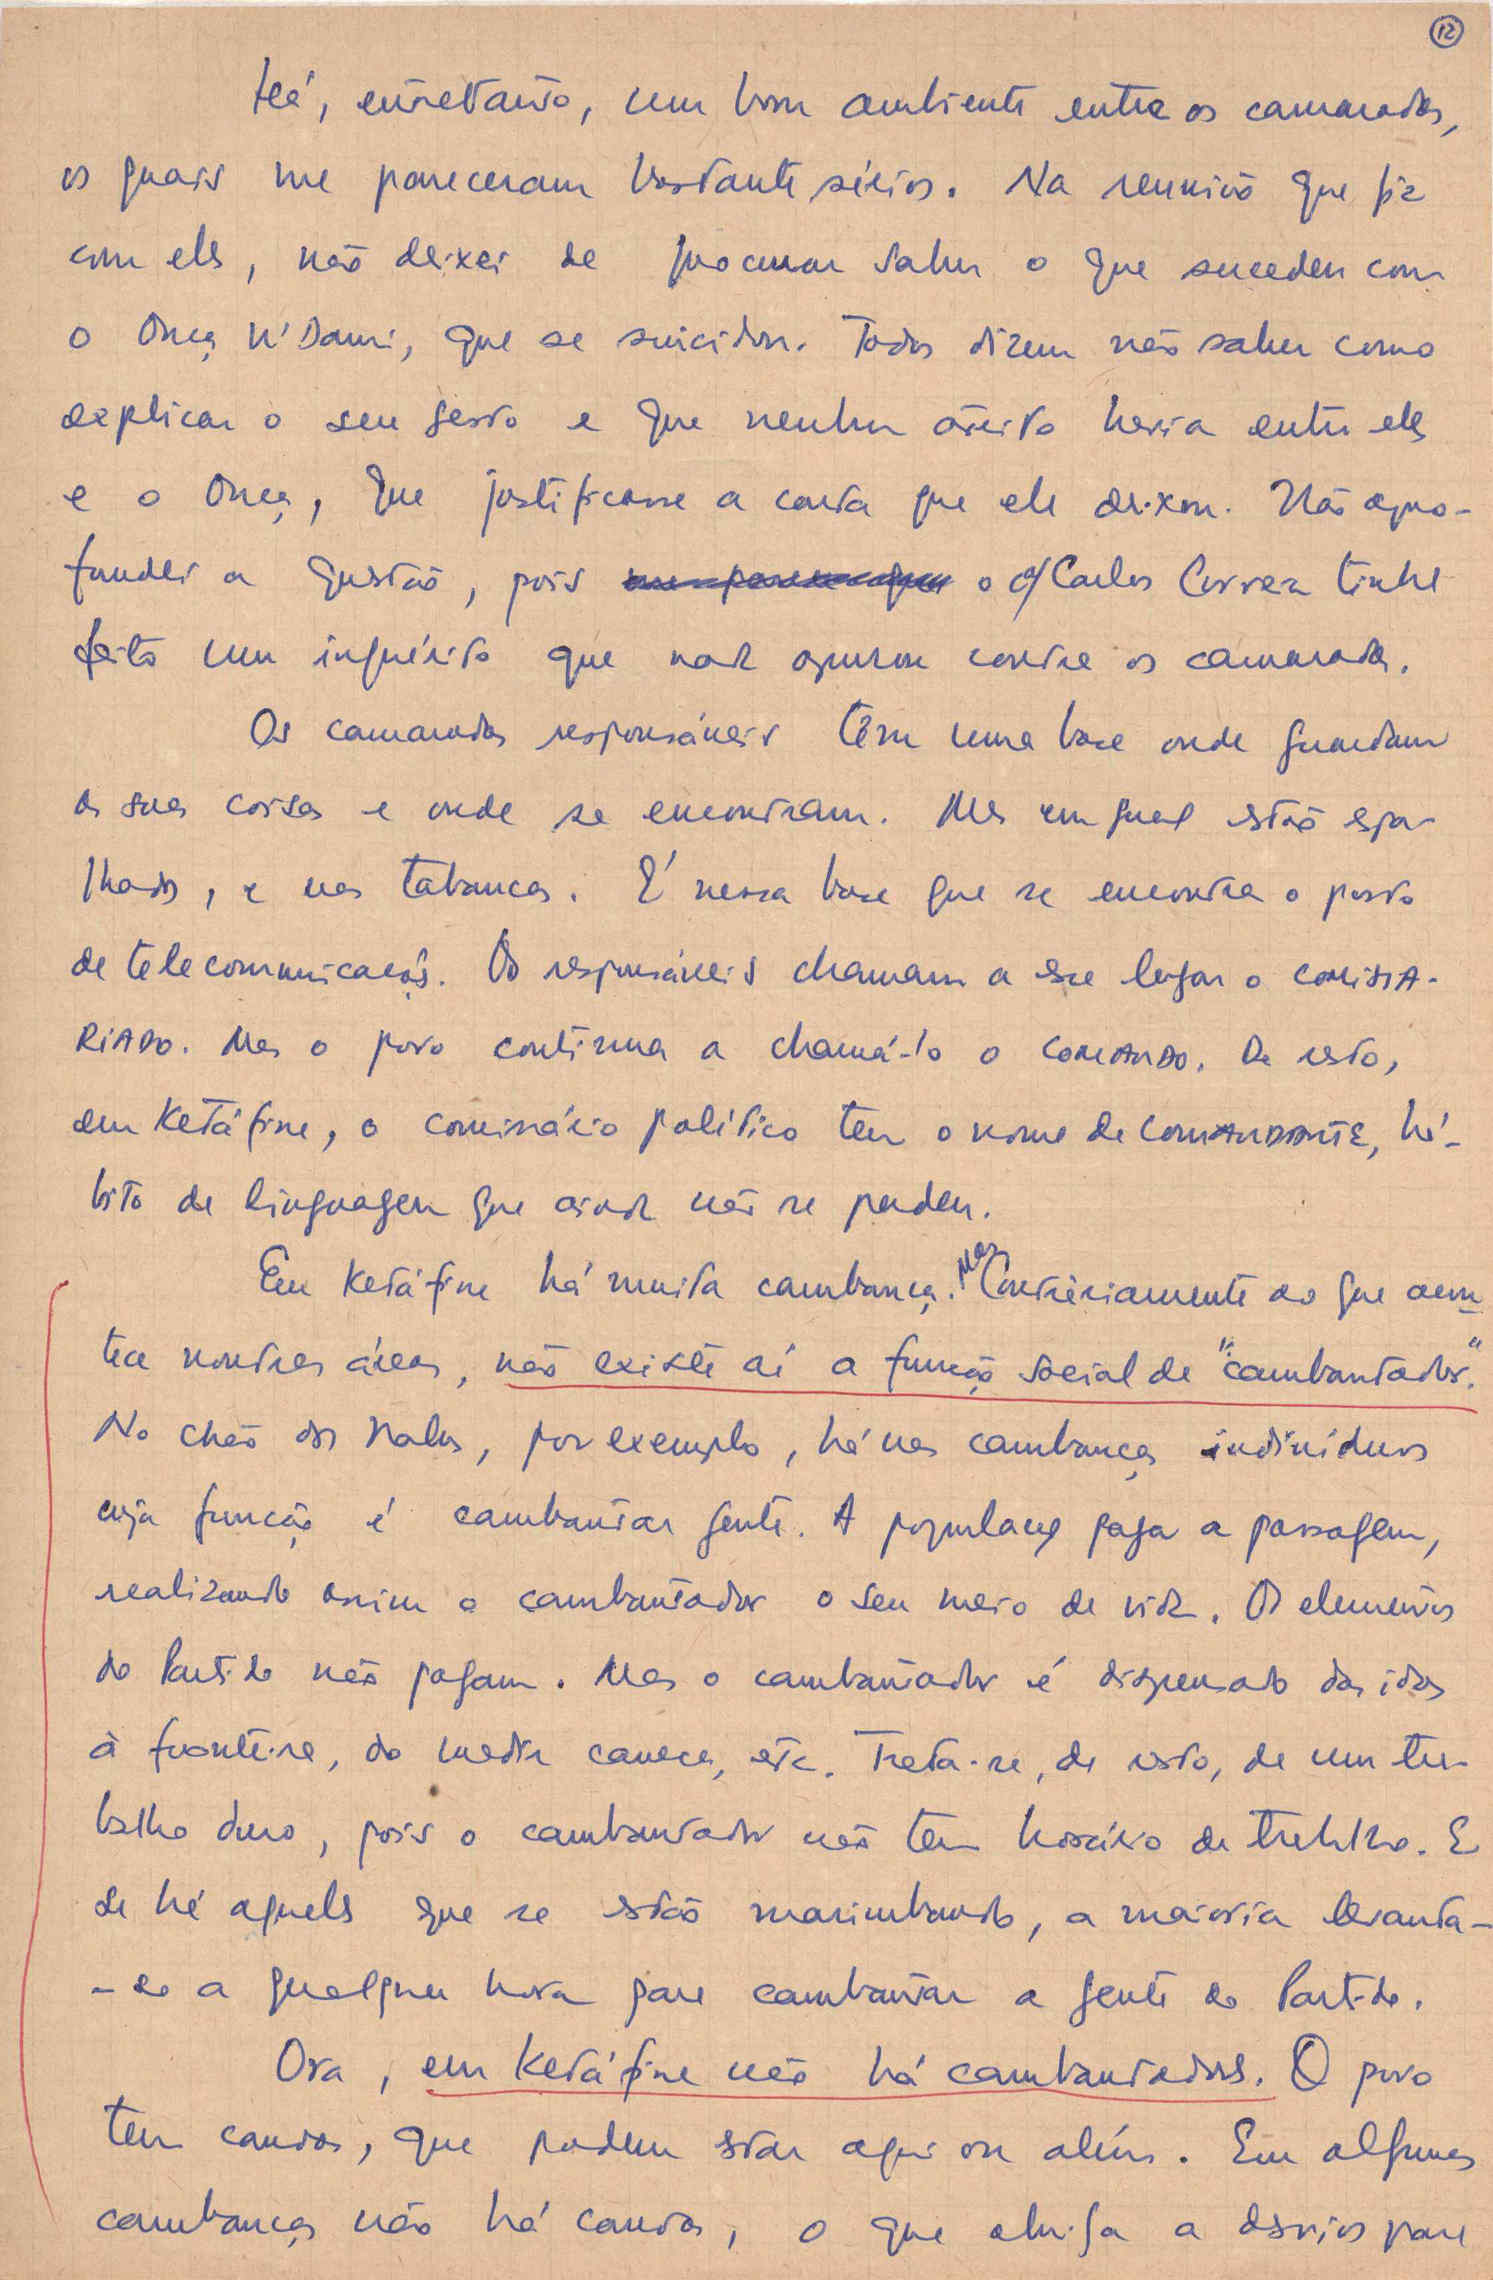 12
Há, entretanto, um bom ambiente entre os camaradas,
os quais me pareceram bastante sérios. Na reunião que fiz
com eles, não deixei de procurar saber o que sucedeu com
o Onça N'Dami, que se suicidou. Todos dizem não saber como
explicar o seu gesto e que nenhum atrito havia entre eles
e o Onça, que justificasse a carta que ele deixou. Não apro-
fundei a questão, pois o c/Carlos Correia tinha
feito um inquérito que nada apurou contra os camaradas.
Os camaradas responsáveis têm uma base onde guardam
as suas coisas e onde se encontram. Mas em geral estão espa-
lhados, e nas tabancas. É nessa base que se encontra o posto
de telecomunicações. Os responsáveis chamam a esse lugar o COMISSA-
RIADO. Mas o povo continua a chamá-lo o COMANDO. De resto,
em Ketáfine, o comissário político tem o nome de COMANDANTE, há-
bito de linguagem que ainda não se perdeu.
Em Ketáfine há muita cambança. Mas Contràriamente ao que acon-
tece noutras áreas, não existe aí a função social de "cambantador".
No chão dos Nalus, por exemplo, há nas cambanças indivíduos
cuja função é cambantar gente. A população paga a passagem,
realizando assim o cambantador o seu meio de vida. Os elementos
do Partido não pagam. Mas o cambantador é dispensado das idas
à fronteira, da canecas, etc. Trata-se, de resto, de um tra-
balho duro, pois o cambantador não tem horário de trabalho. E
se há aqueles que se estão marimbando, a maioria levanta-
-se a qualquer hora para cambantar a gente do Partido.
Ora, em Ketáfine não há cambantadores. O povo
tem canoas, que podem estar aqui ou além. Em algumas
cambanças não há canoas, o que obriga a desvios para